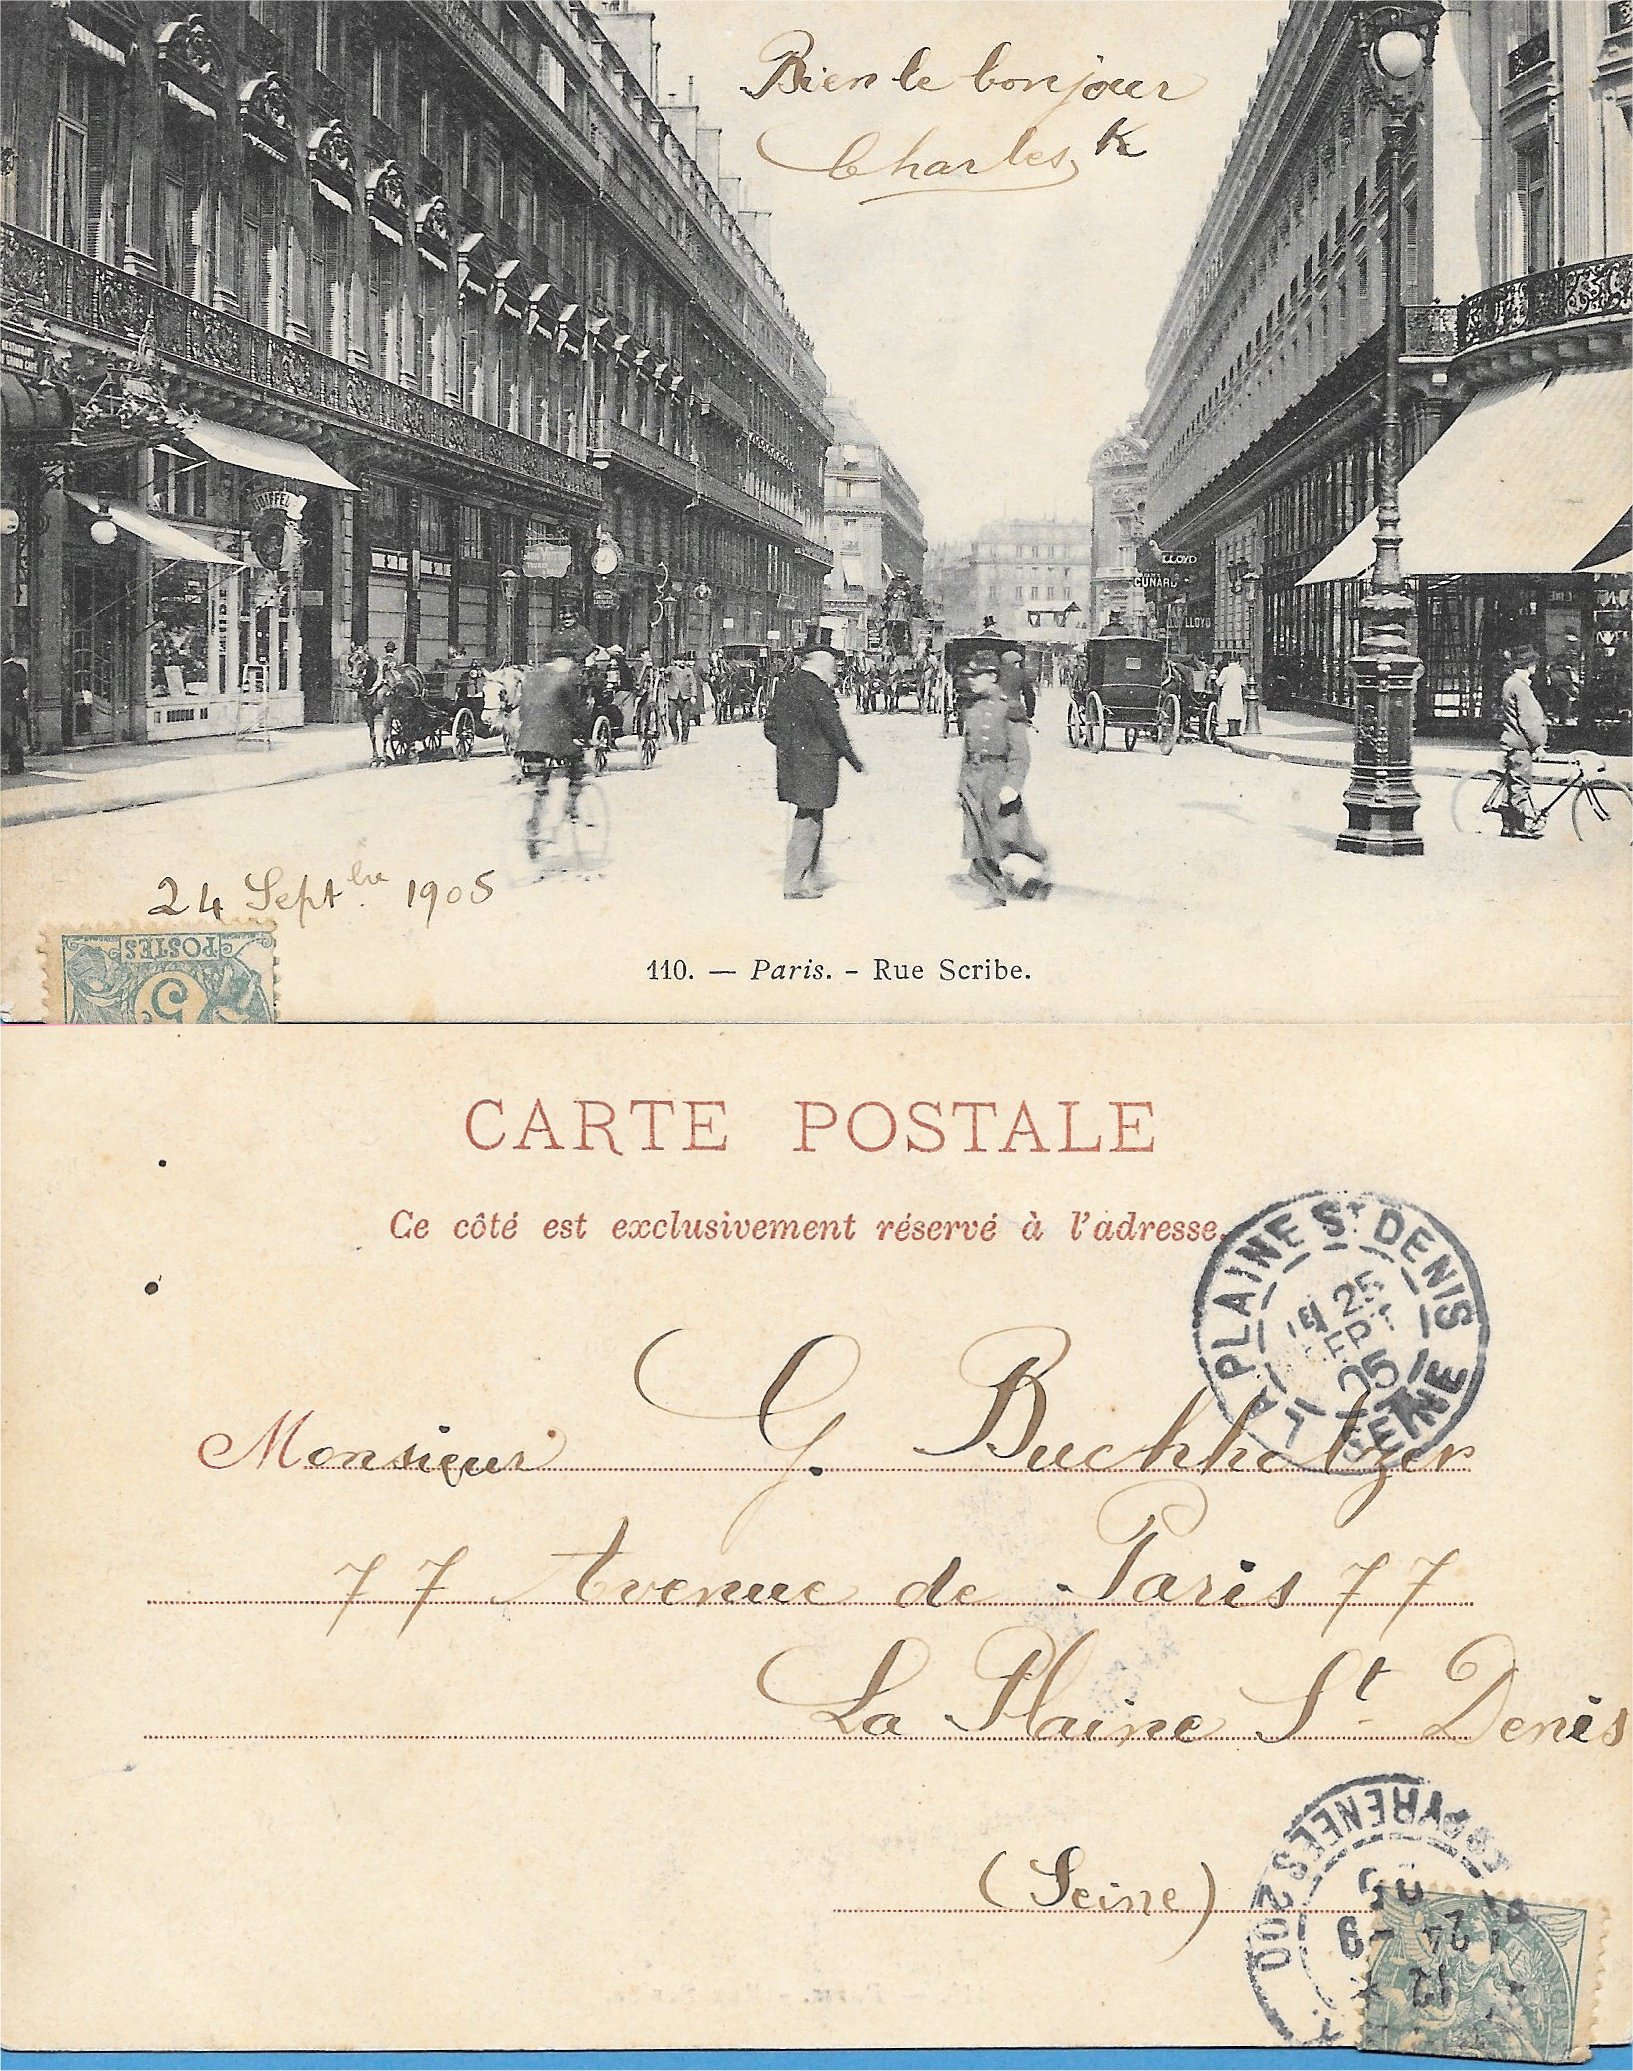 Bien le bonjour
Charles K
RESTAURANT
LLOYD
CUNARD
LLOYD
24 Septbre 1905
POSTES
5
110. — Paris. - Rue Scribe.
CARTE POSTALE
Ce côté est exclusivement réservé à l'adresse.
LA PLAINE St DENIS
25
SEPT
05
SEINE
Monsieur G. Buchholtzer
77 Avenue de Paris 77
La Plaine St Denis
(Seine)
PYRENEES
24 - 9
05